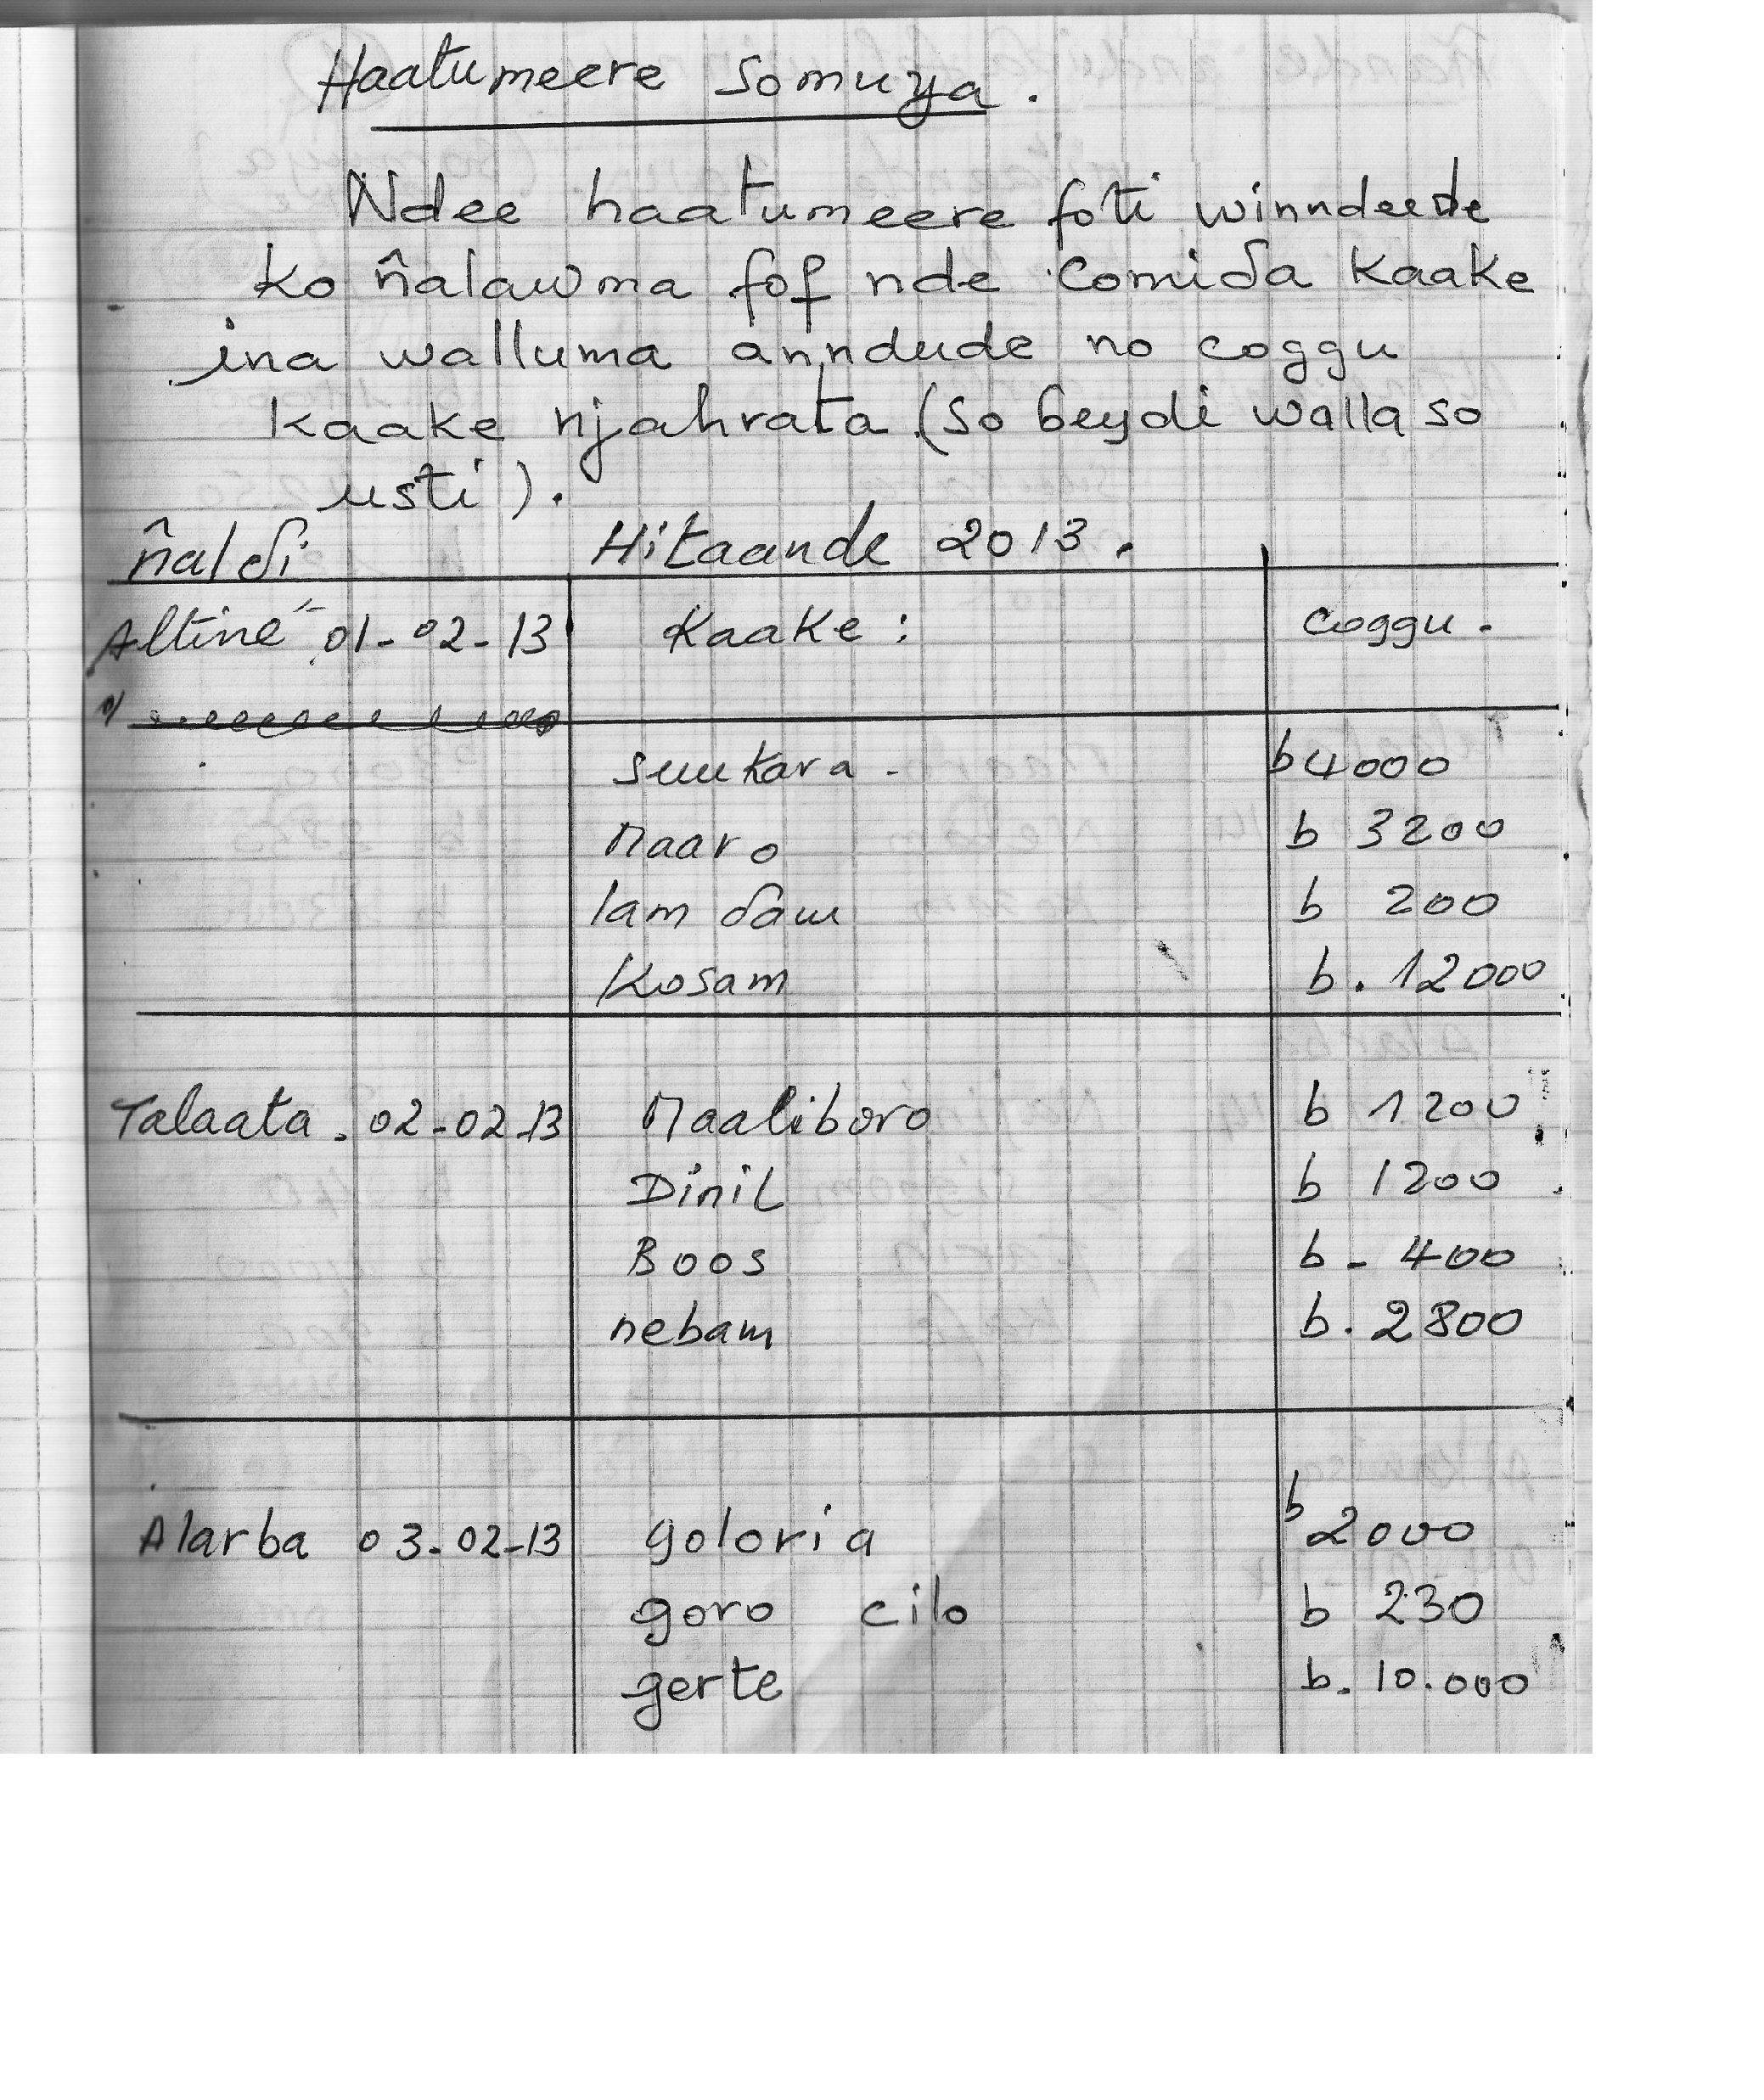 Haatumeere somuya.
Ndee haatumeere foti winndeede
ko ñalawma fof nde comiɗa kaake
ina walluma anndude no coggu
kaake njahrata (so beydi walla so
usti).
ñalɗi Hitaande 2013.
Altine 01-02-13 Kaake: Coggu.
suukara - b 4000
Maaro b 3200
lam ɗam b 200
Kosam b. 12000
Talaata. 02-02-13 Maaliboro b 1200
Dinil b 1200
Boos b - 400
nebam b. 2800
Alarba 03-02-13 goloria b 2000
goro cilo b 230
gerte b. 10.000